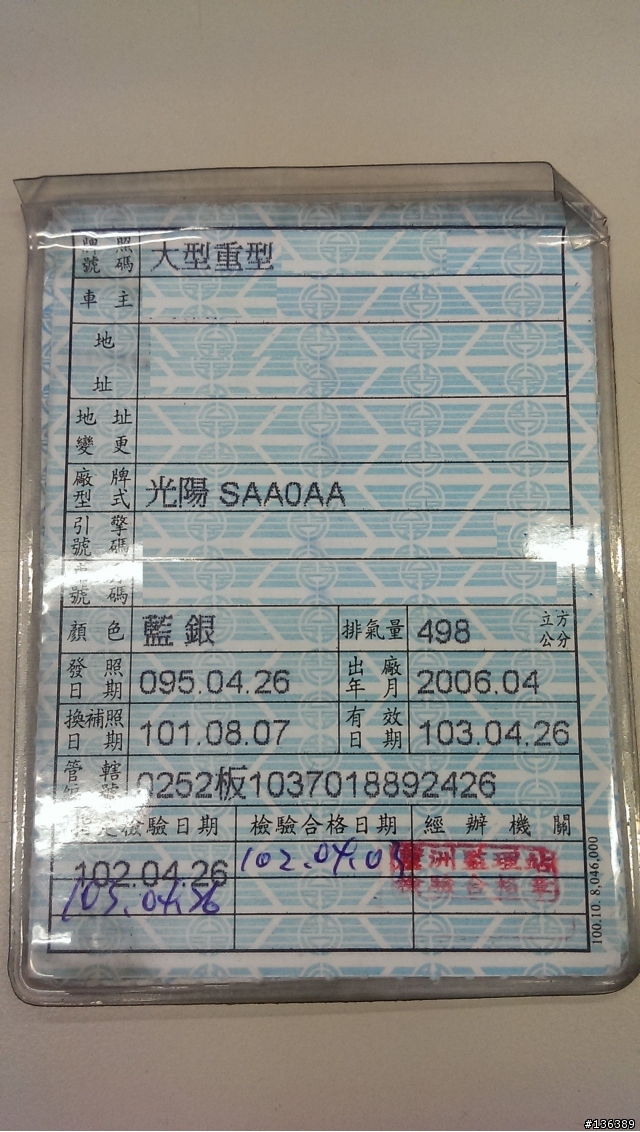 牌照號碼 大型重型
車主
地址
地址變更
廠牌型式 光陽 SAA0AA
引擎號碼
號碼
顏色 藍銀 排氣量 498 立方公分
發照日期 095.04.26 出廠年月 2006.04
換補照日期 101.08.07 有效日期 103.04.26
管轄編號 0252板1037018892426
指定檢驗日期 檢驗合格日期 經辦機關
102.04.26 102.04.03 蘆洲監理站
檢驗合格章
103.04.26
100.10. 8,046,000
#136389